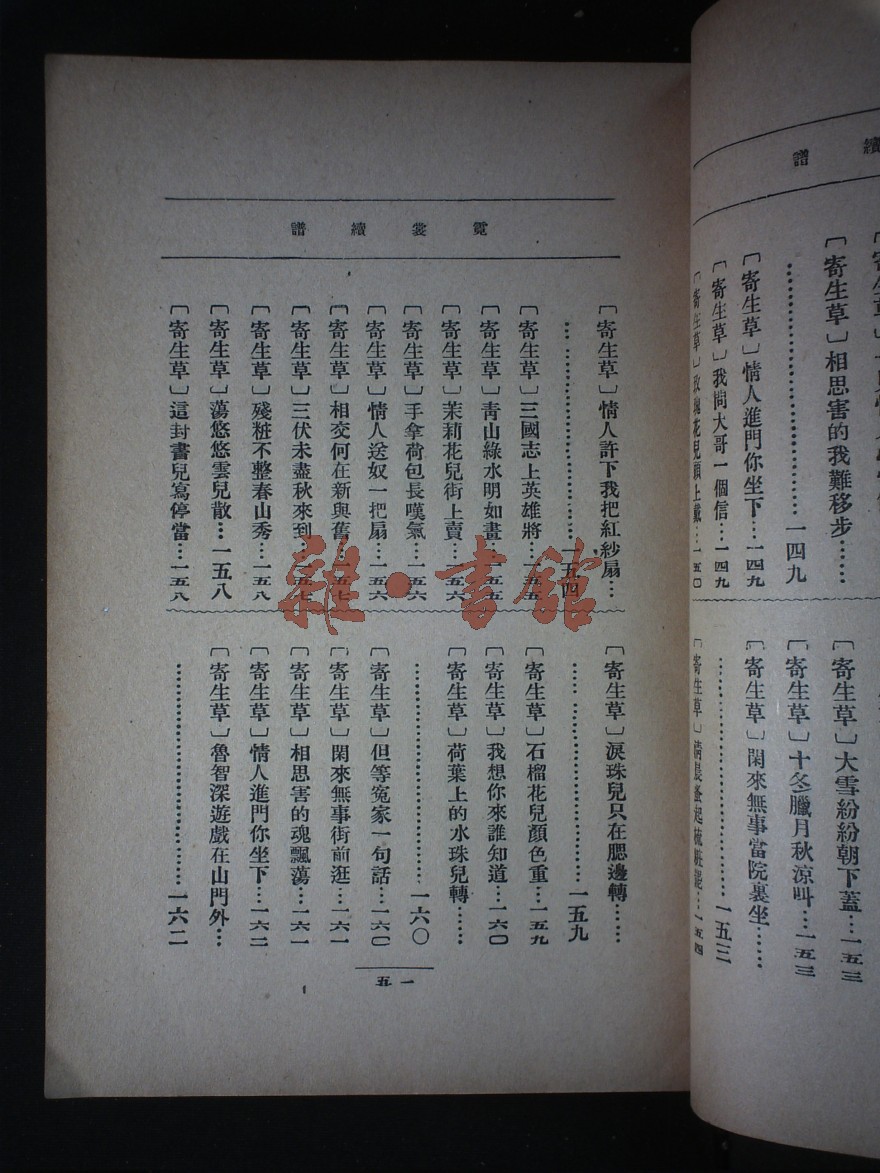 續譜
〔寄生草〕相思害的我難移步……
…………………一四九
〔寄生草〕情人進門你坐下…一四九
〔寄生草〕我問大哥一個信…一四九
〔寄生草〕玫瑰花兒頭上戴…一五〇
〔寄生草〕大雪紛紛朝下蓋…一五三
〔寄生草〕十冬臘月秋涼叫…一五三
〔寄生草〕閑來無事當院裏坐……
…………………一五三
〔寄生草〕清晨蚤起梳粧罷…一五四
霓裳續譜
〔寄生草〕情人許下我把紅紗扇…
…………………一五四
〔寄生草〕三國志上英雄將…一五五
〔寄生草〕靑山綠水明如畫…一五五
〔寄生草〕茉莉花兒街上賣…一五六
〔寄生草〕手拿荷包長嘆氣…一五六
〔寄生草〕情人送奴一把扇…一五六
〔寄生草〕相交何在新與舊…一五七
〔寄生草〕三伏未盡秋來到…一五七
〔寄生草〕殘粧不整春山秀…一五八
〔寄生草〕蕩悠悠雲兒散…一五八
〔寄生草〕這封書兒寫停當…一五八
〔寄生草〕淚珠兒只在腮邊轉……
…………………一五九
〔寄生草〕石榴花兒顏色重…一五九
〔寄生草〕我想你來誰知道…一六〇
〔寄生草〕荷葉上的水珠兒轉……
…………………一六〇
〔寄生草〕但等寃家一句話…一六〇
〔寄生草〕閑來無事街前逛…一六一
〔寄生草〕相思害的魂飄蕩…一六一
〔寄生草〕情人進門你坐下…一六二
〔寄生草〕魯智深遊戲在山門外…
…………………一六二
一五
雜·書館